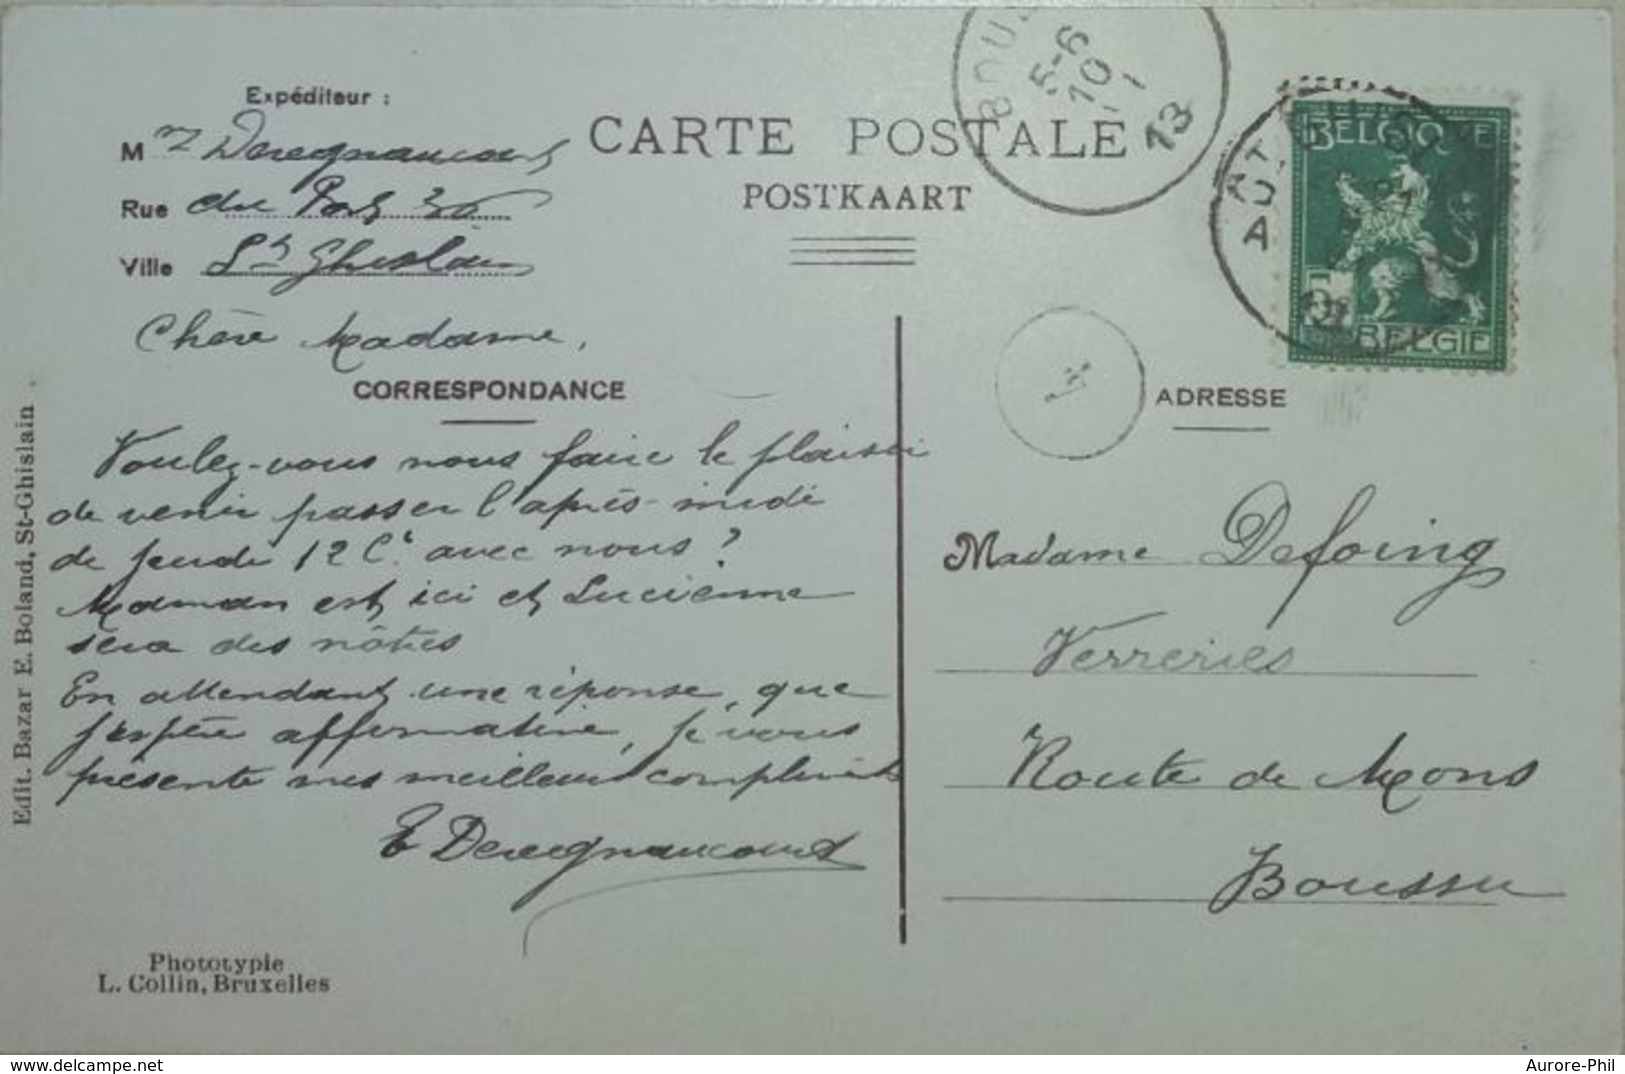 Expéditeur :
M
Rue du Port 36
Ville St Ghislain
CARTE POSTALE
POSTKAART
5-6
10
1
13
BELGIQUE
5
BELGIE
Chère Madame,
CORRESPONDANCE
Voulez-vous nous faire le plaisir
de venir passer l'après-midi
de jeudi 12 Ct avec nous ?
Maman est ici et Lucienne
sera des nôtres
En attendant une réponse, que
j'espère affirmative, je vous
présente mes meilleurs compliments
E Deregnaucourt
ADRESSE
Madame Defoing
Verreries
Route de Mons
Boussu
Edit. Bazar E. Boland, St-Ghislain
Phototypie
L. Collin, Bruxelles
www.delcampe.net
Aurore-Phil